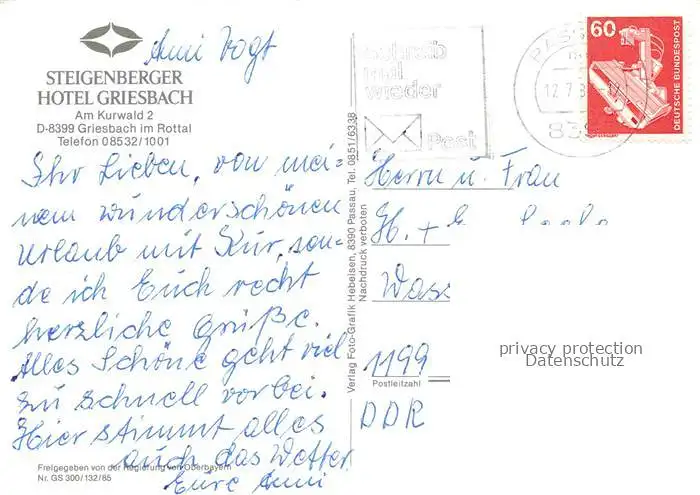 Anni Vogt
STEIGENBERGER
HOTEL GRIESBACH
Am Kurwald 2
D-8399 Griesbach im Rottal
Telefon 08532/1001
Ihr Lieben, von mei-
nem wunderschönen
Urlaub mit Kur, sen-
de ich Euch recht
herzliche Grüße.
Alles Schöne geht viel
zu schnell vorbei.
Hier stimmt alles
auch das Wetter
Eure Anni
Freigegeben von der Regierung von Oberbayern
Nr. GS 300/132/65
Verlag Foto-Grafik Hebeisen, 8390 Passau, Tel. 0851/6338
Nachdruck verboten
schreib
mal
wieder
Post
60
DEUTSCHE BUNDESPOST
Herrn u. Frau
H. +
Was
1199
Postleitzahl
DDR
privacy protection
Datenschutz